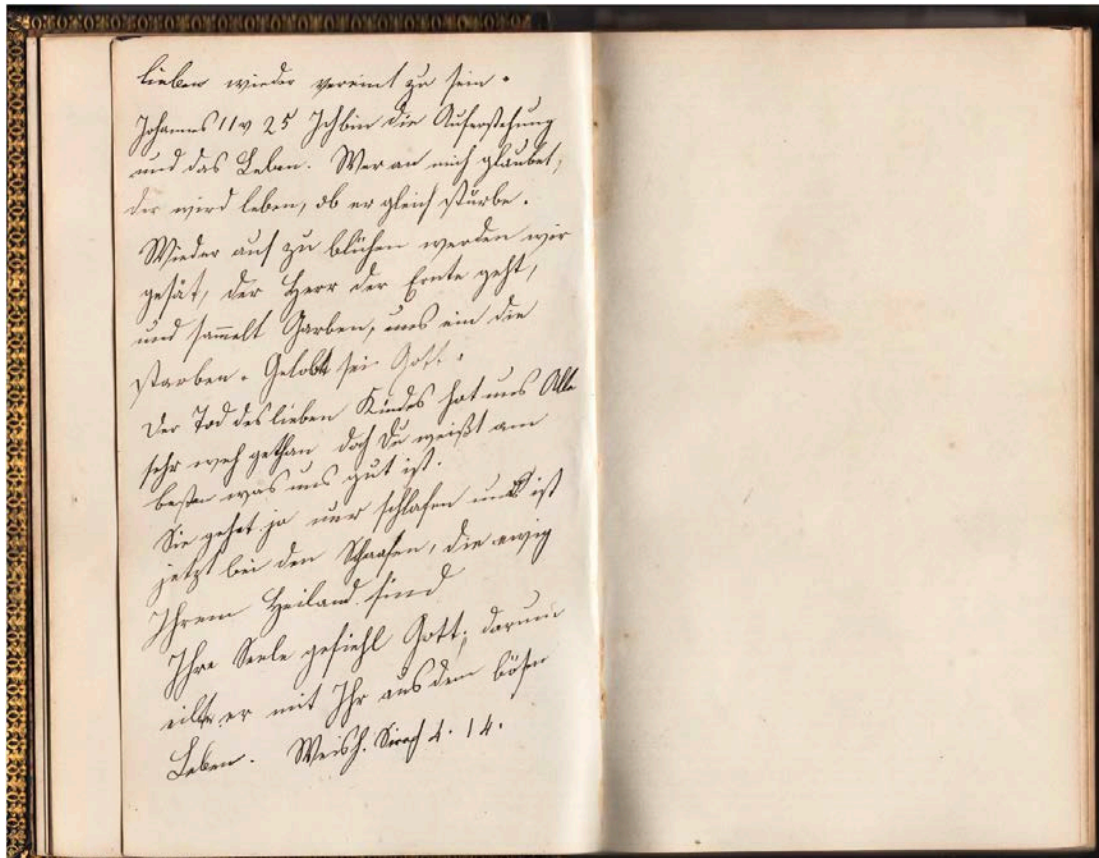 lieben wieder vereint zu sein.
Johannes 11 v 25 Ich bin die Auferstehung
und das Leben. Wer an mich glaubet,
der wird leben, ob er gleich stürbe.
Wieder auf zu blühen werden wir
gesät, der Herr der Ernte geht,
und sam̅elt Garben, uns ein die
starben. Gelobt sei Gott.
Der Tod des lieben Kindes hat uns Alle
sehr weh gethan doch Du weißt am
besten was uns gut ist.
Sie gehet ja nur schlafen und ist
jetzt bei den Schaafen, die ewig
Ihrem Heiland sind
Ihre Seele gefiehl Gott; darum
eilte er mit Ihr aus dem bösen
Leben. Weish. Sirach 4. 14.